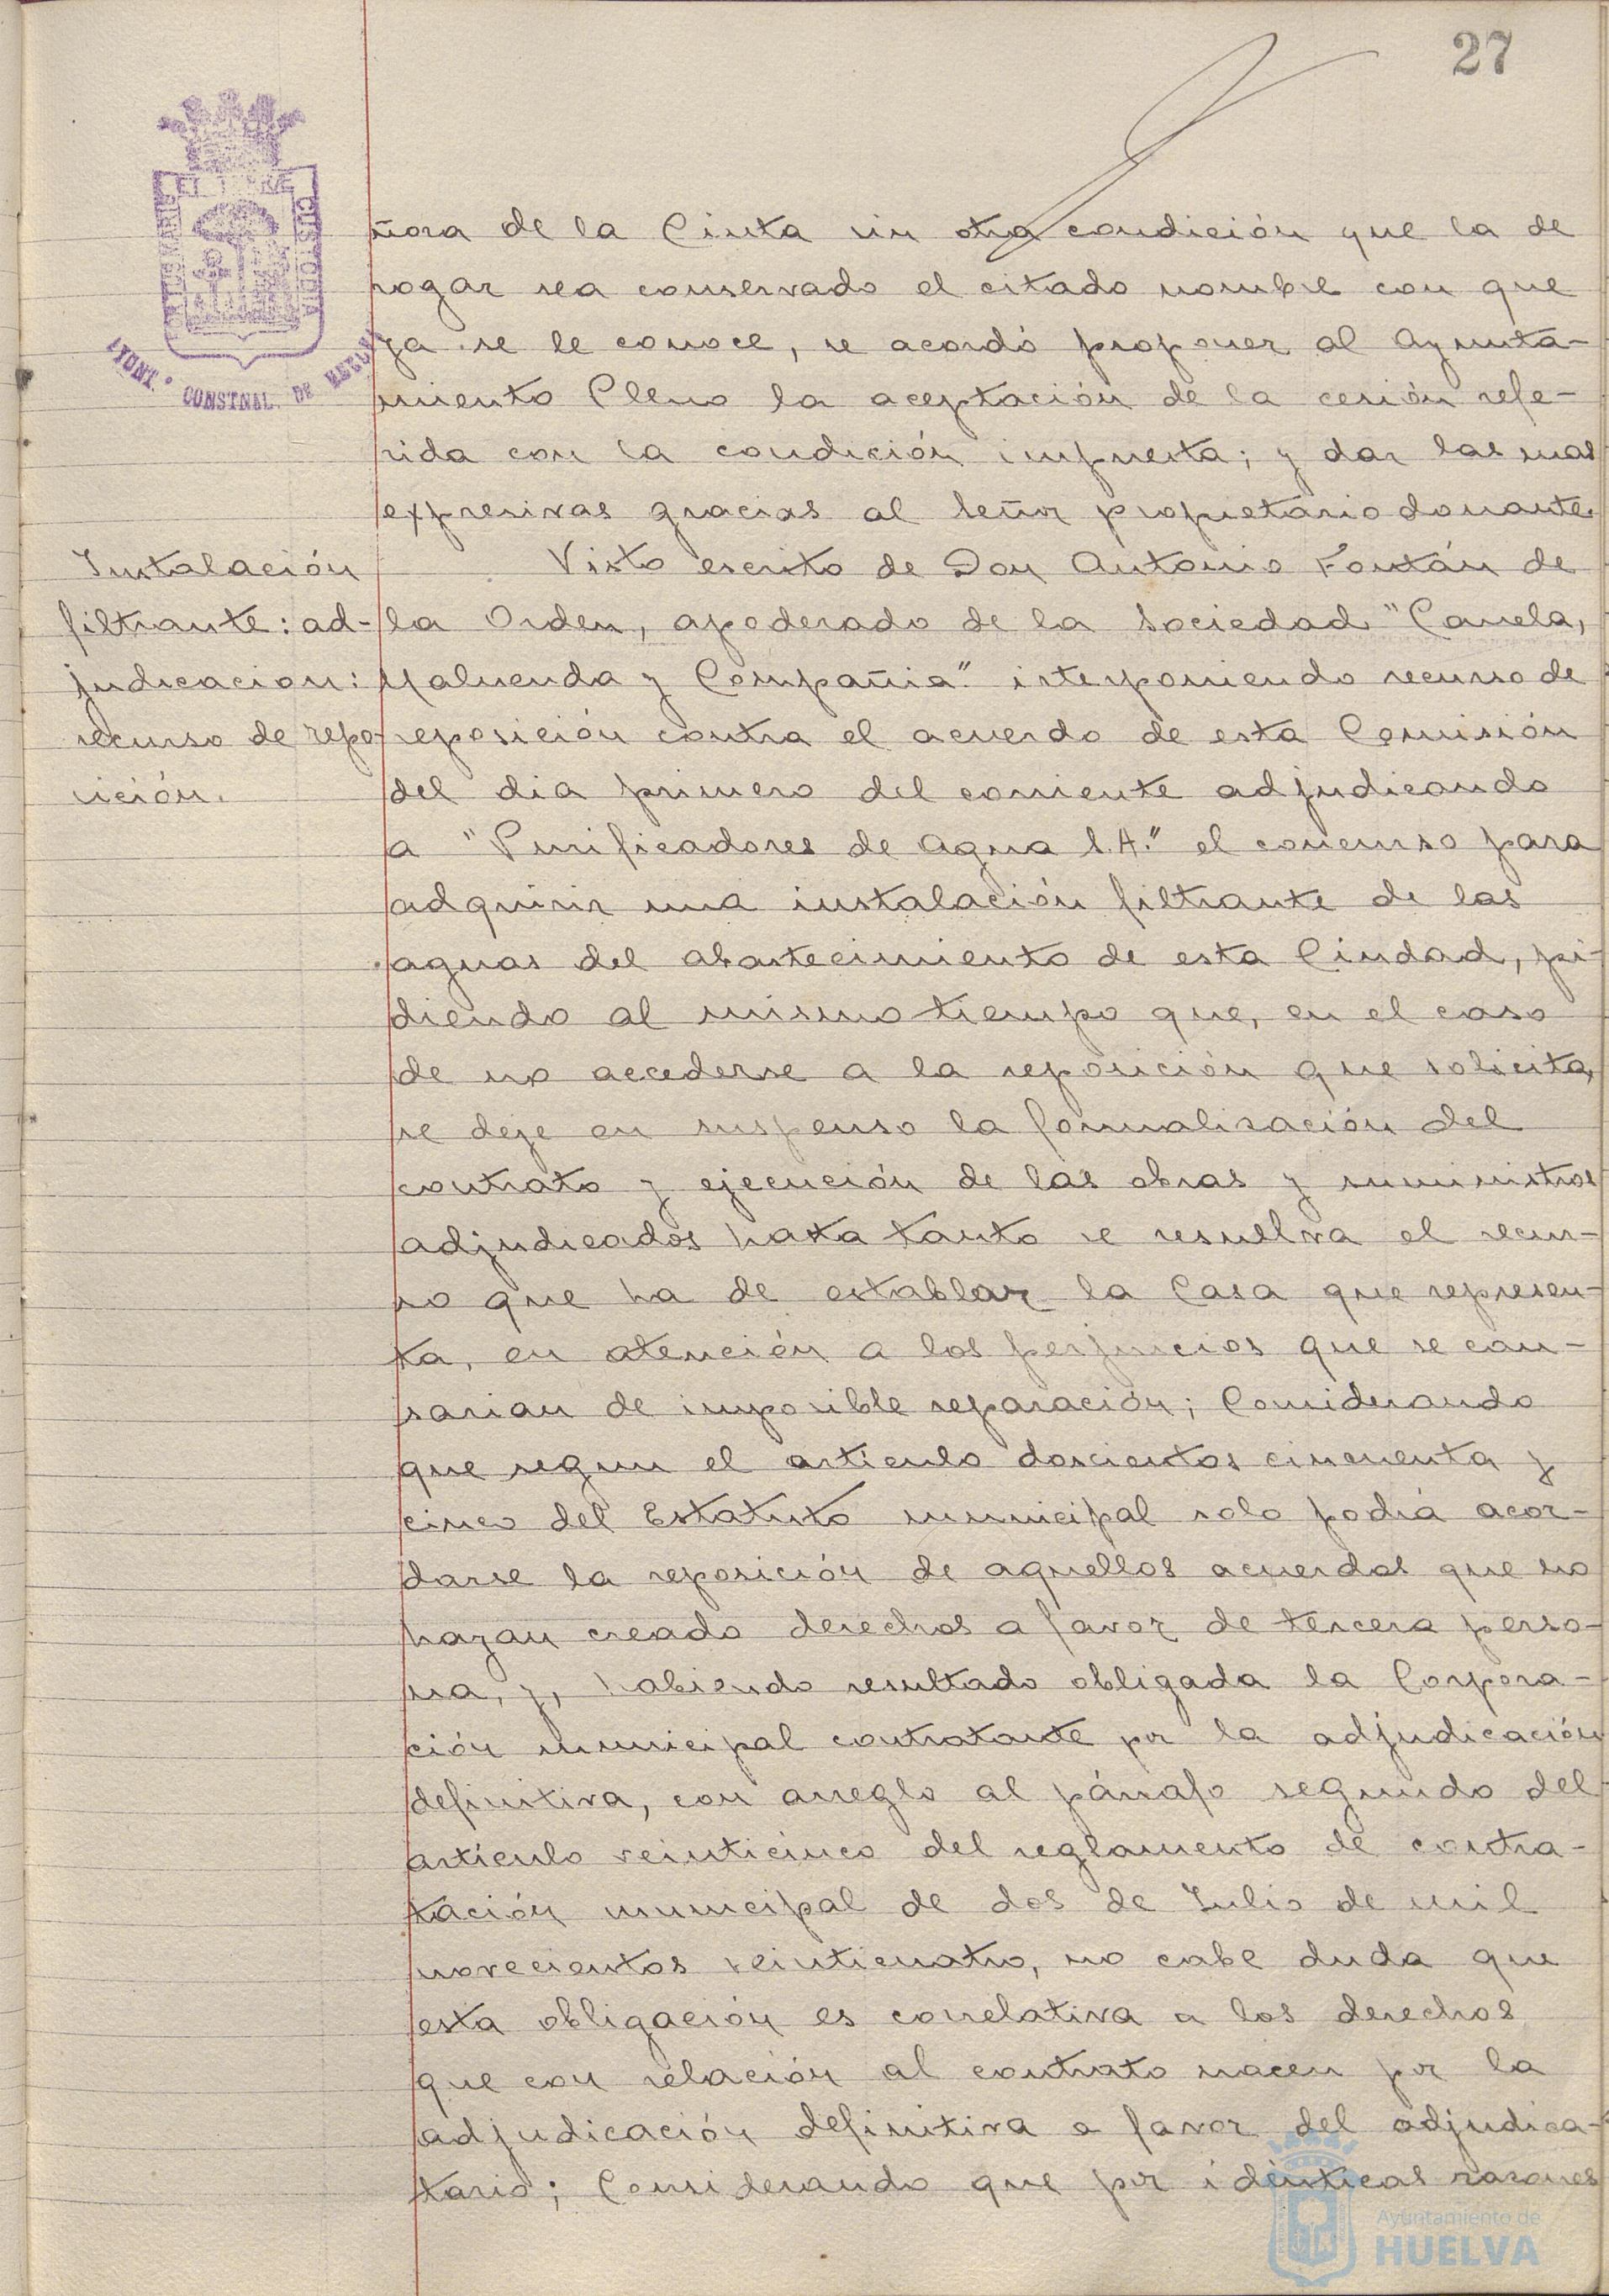 27
PORTUS MARIS ET TERRE CUSTODIA
AYONT.º CONSTNAL. DE HUELVA
ñora de la Cinta sin otra condición que la de
rogar sea conservado el citado nombre con que
ya se le conoce, se acordó proponer al Ayunta-
miento Pleno la aceptación de la cesión refe-
rida con la condición impuesta; y dar las mas
expresivas gracias al Señor propietario donante.
Instalación
filtrante: ad-
judicacion:
recurso de repo-
sición.
Visto escrito de Don Antonio Fontán de
la Orden, apoderado de la Sociedad "Canela,
Maluenda y Compañia". interponiendo recurso de
reposición contra el acuerdo de esta Comisión
del dia primero del corriente adjudicando
a "Purificadores de Agua S.A." el concurso para
adquirir una instalación filtrante de las
aguas del abastecimiento de esta Ciudad, pi-
diendo al mismo tiempo que, en el caso
de no accederse a la reposición que solicita,
se deje en suspenso la formalización del
contrato y ejecución de las obras y suministros
adjudicados hasta tanto se resuelva el recur-
so que ha de establar la Casa que represen-
ta, en atención a los perjuicios que se cau-
sarian de imposible reparación; Considerando
que segun el artículo doscientos cincuenta y
cinco del Estatuto municipal solo podrá acor-
darse la reposición de aquellos acuerdos que no
hayan creado derechos a favor de tercera perso-
na, y, habiendo resultado obligada la Corpora-
ción municipal contratante por la adjudicación
definitiva, con arreglo al párrafo segundo del
artículo veinticinco del reglamento de contra-
tación municipal de dos de Julio de mil
novecientos veinticuatro, no cabe duda que
esta obligación es correlativa a los derechos
que con relación al contrato nacen por la
adjudicación definitiva a favor del adjudica-
tario; Considerando que por idénticas razones
Ayuntamiento de
HUELVA